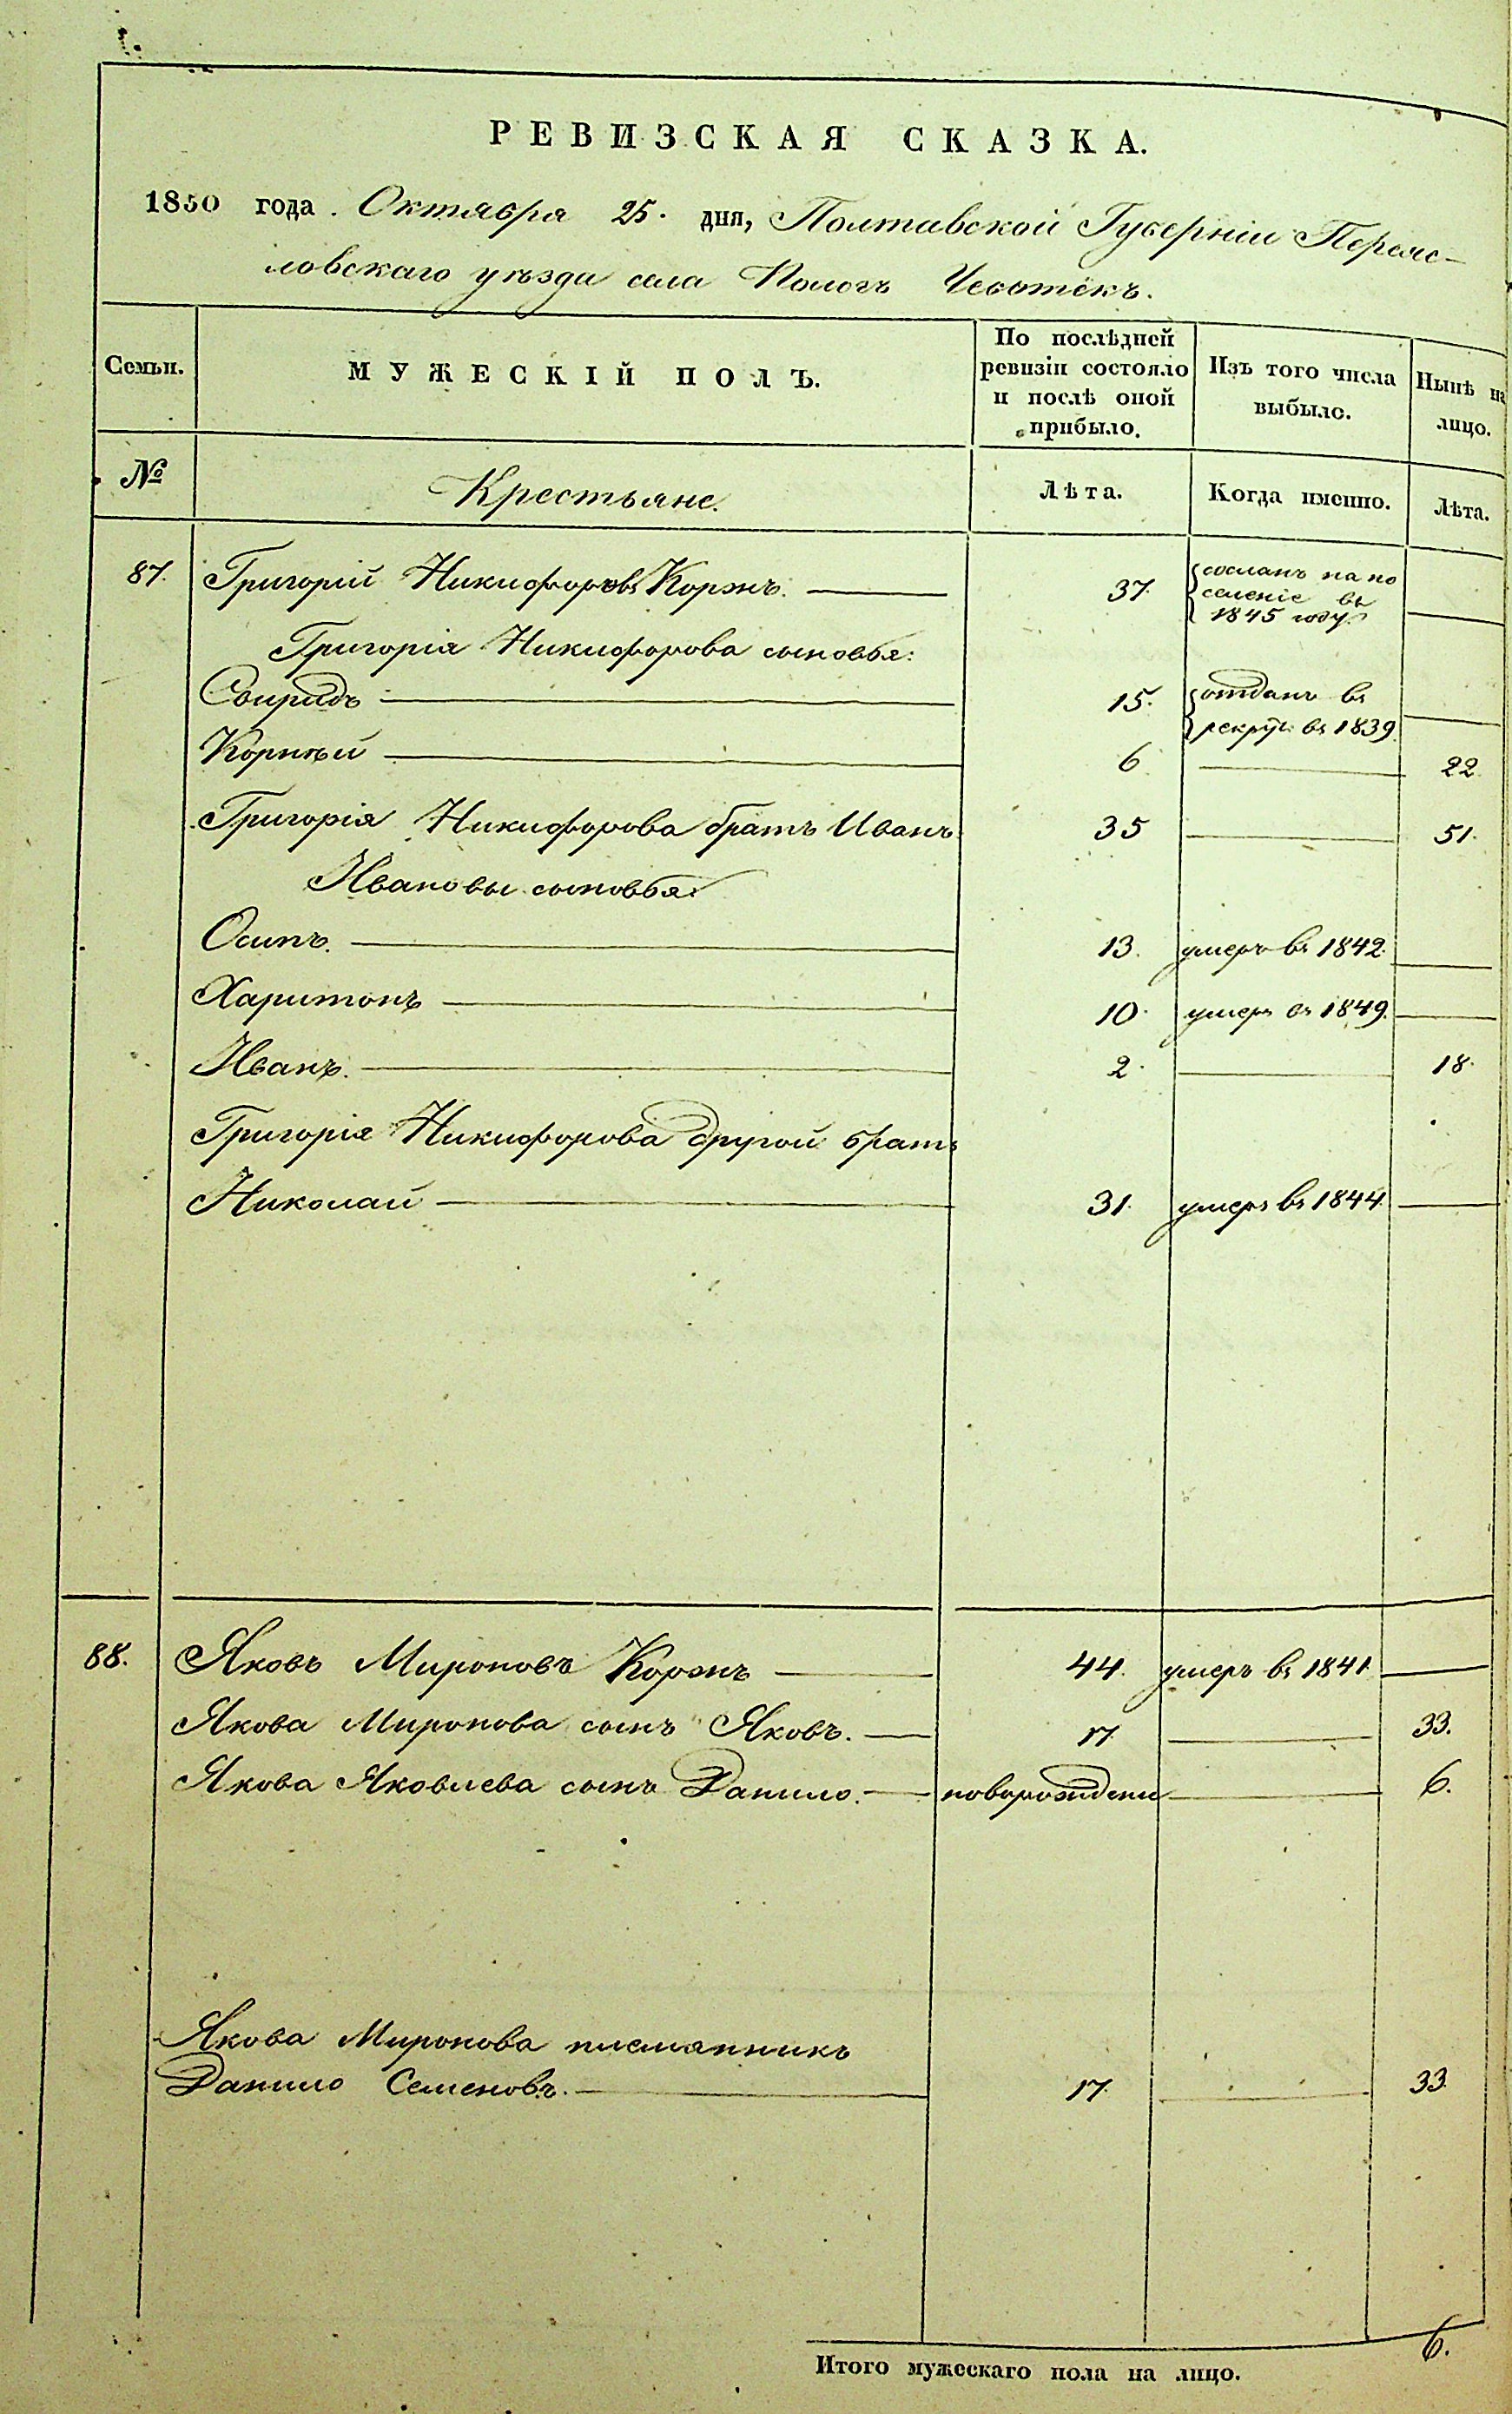 РЕВИЗСКАЯ СКАЗКА.
1850 года. Октября 25. дня, Полтавской Губерніи Переяс-
ловскаго уѣзда села Пологъ Чеботекъ.
Семьи.
МУЖЕСКІЙ ПОЛЪ.
По послѣдней
ревизіи состояло
и послѣ оной
прибыло.
Изъ того числа
выбыло.
Нынѣ на
лицо.
№
Крестьяне.
Лѣта.
Когда именно.
Лѣта.
87. Григорій Никифоровъ Коржъ. 37. сосланъ на по
селеніе въ
1845 году.
Григорія Никифорова сыновья:
Свиридъ 15. отданъ въ
рекрут: въ 1839
Корнѣй 6 22.
Григорія Никифорова братъ Иванъ 35 51.
Ивановы сыновья:
Осипъ. 13. умеръ въ 1842.
Харитонъ 10. умеръ въ 1849.
Иванъ. 2. 18.
Григорія Никифорова другой братъ
Николай 31. умеръ въ 1844.
88. Яковъ Мироновъ Коржъ 44. умеръ въ 1841.
Якова Миронова сынъ Яковъ. 17. 33.
Якова Яковлева сынъ Данило. новорожденн 6.
Якова Миронова племянникъ
Данило Семеновъ. 17. 33.
Итого мужескаго пола на лицо. 6.